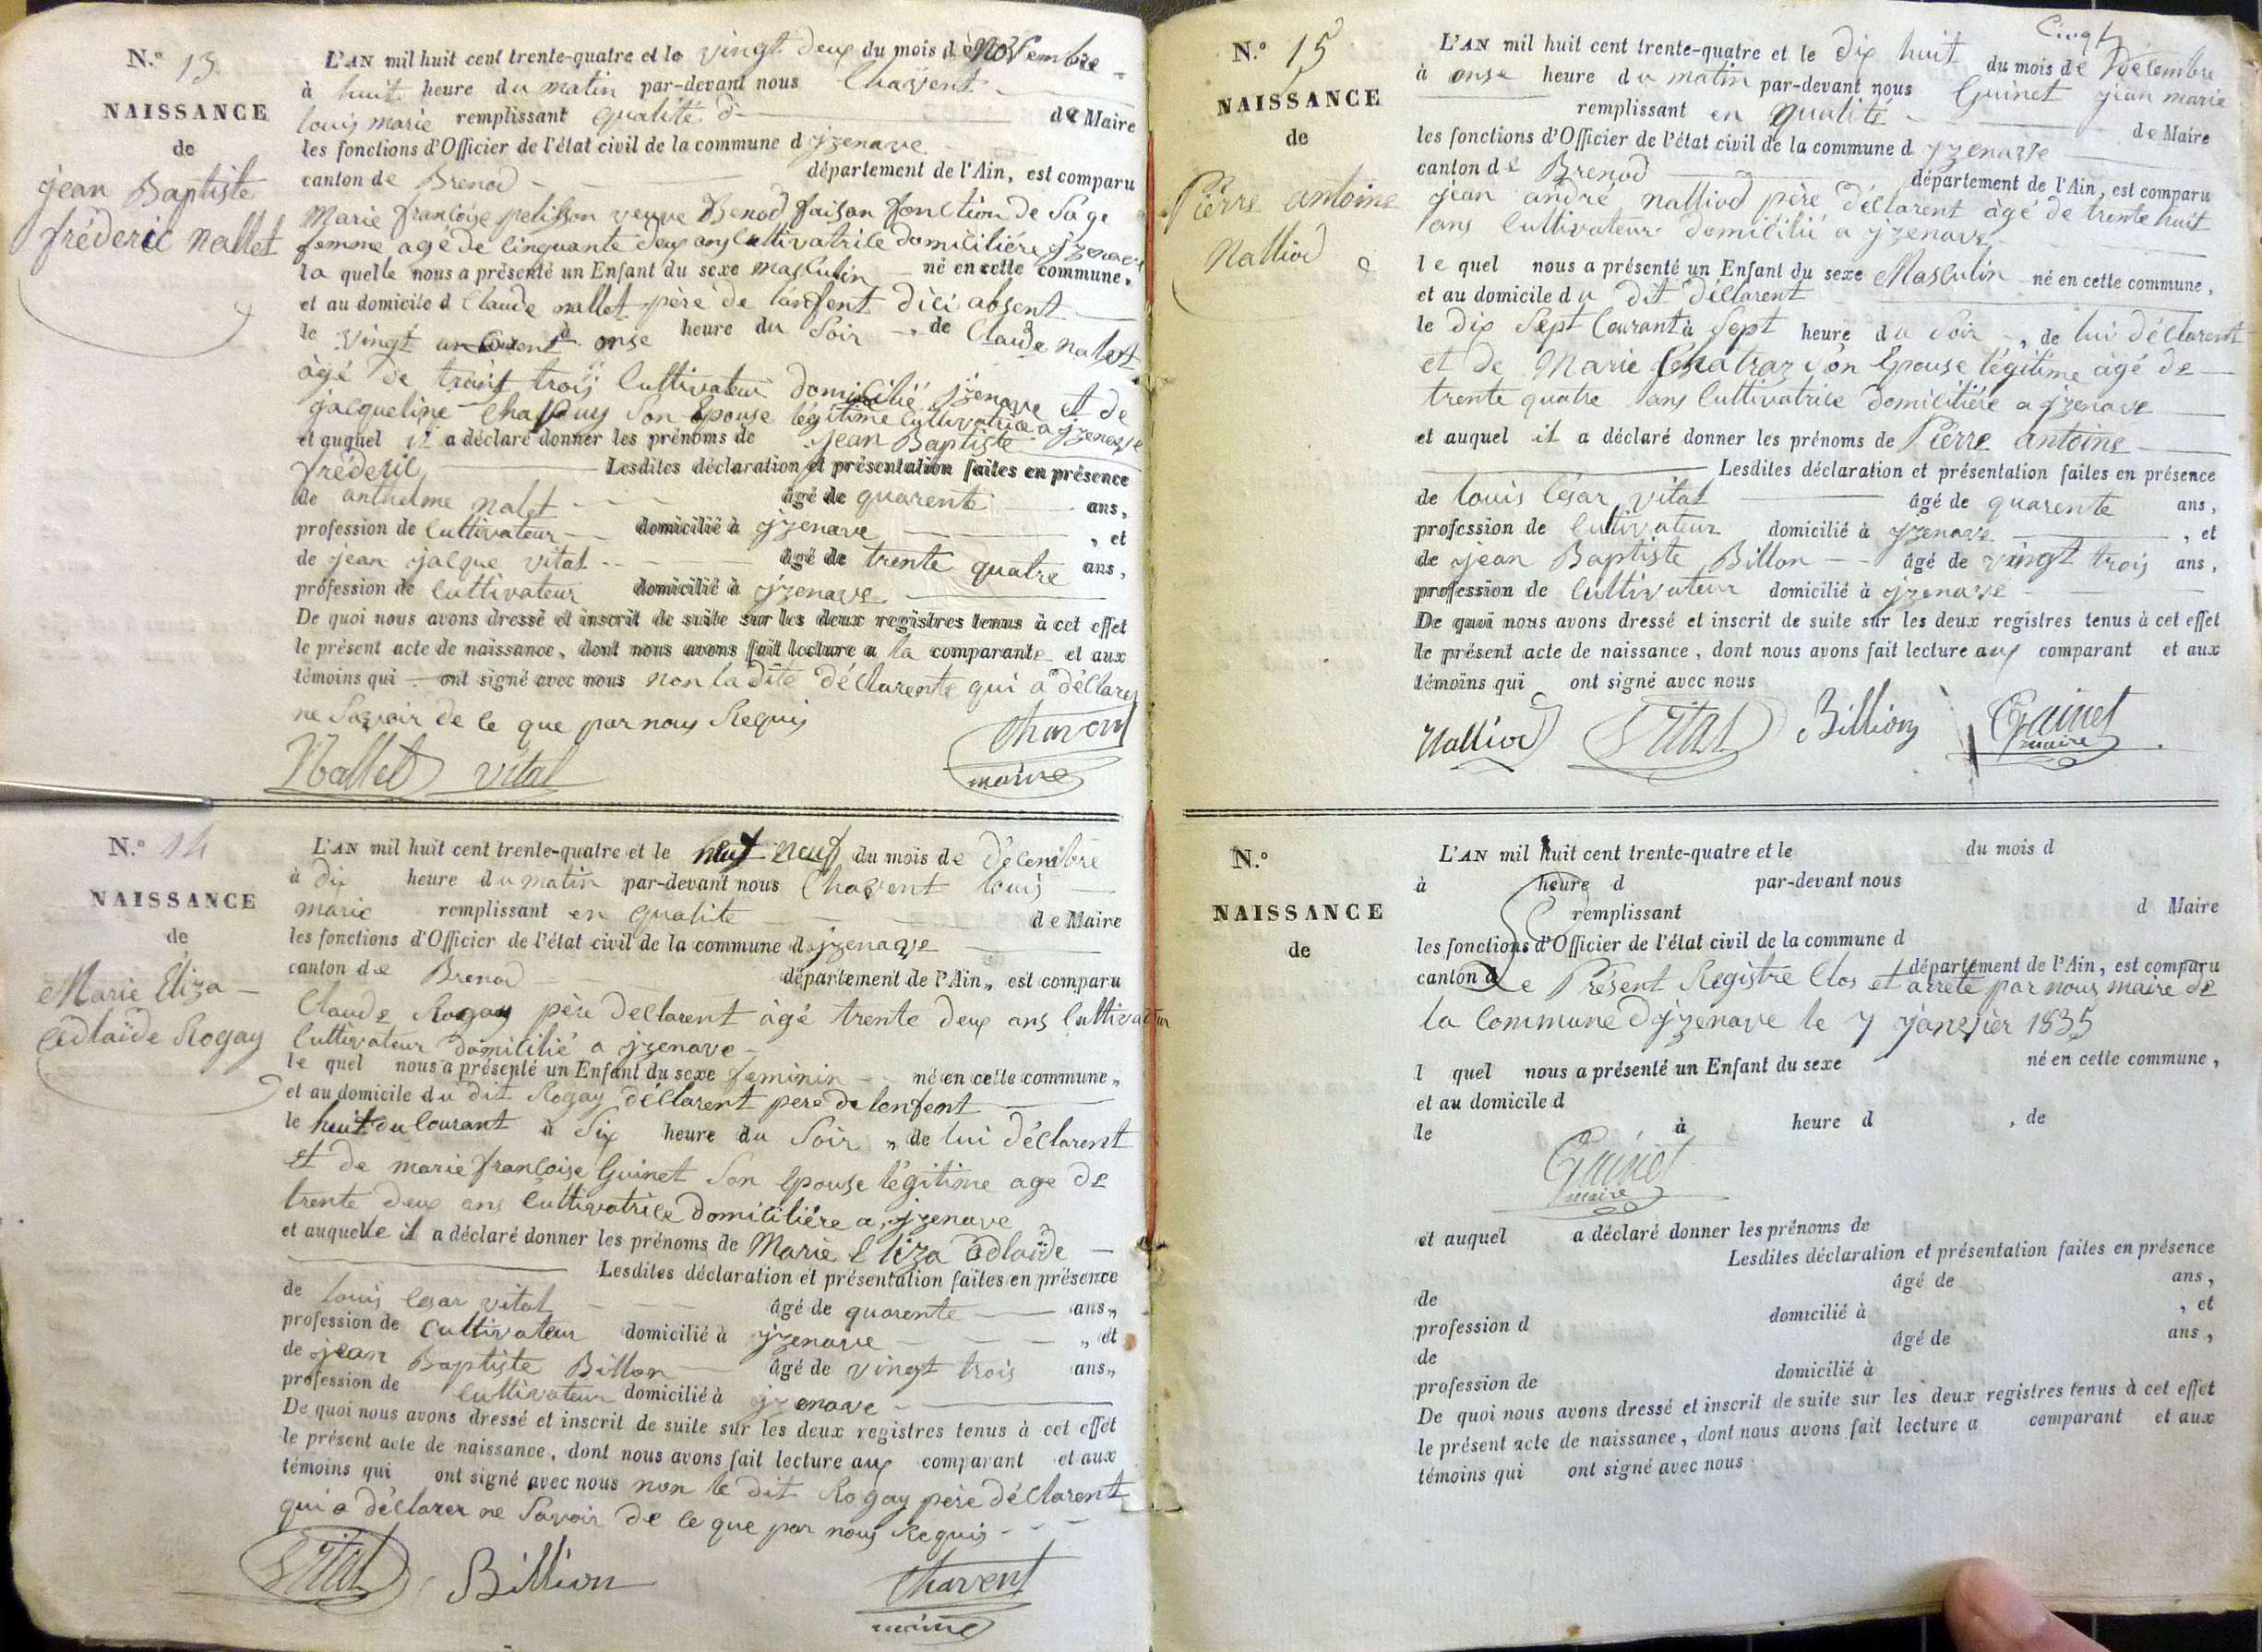 N.º 13
NAISSANCE
de
jean Baptiste
fréderic nallet
L'AN mil huit cent trente-quatre et le vingt deux du mois de Novembre
à huit heure du matin par-devant nous Chavent
louis marie remplissant qualité d de Maire
les fonctions d'Officier de l'état civil de la commune d jzenave
canton de Brenod département de l'Ain, est comparu
Marie françoise pelisson veuve Benod faisan fonction de Sage
femme agé de cinquante deux ans Cultivatrice domiciliére jzenave
la quelle nous a présenté un Enfant du sexe masculin né en cette commune,
et au domicile d Claude nallet père de lanfent dici absent
le vingt un Courent à onse heure du Soir, de Claude nalet
âgé de trent trois Cultivateur domicilié jzenave et de
jacqueline Son Epouse légitime Cultivatrice a jzenave
et auquel il a déclaré donner les prénoms de jean Baptiste
fréderic Lesdites déclaration et présentation faites en présence
de anthelme nalet âgé de quarente ans,
profession de Cultivateur domicilié à jzenave, et
de jean jacque vital âgé de trente quatre ans,
profession de Cultivateur domicilié à jzenave
De quoi nous avons dressé et inscrit de suite sur les deux registres tenus à cet effet
le présent acte de naissance, dont nous avons fait lecture a la comparante et aux
témoins qui ont signé avec nous non la dite déclarente qui a déclarer
ne Savoir de ce que par nous Requis
Nallet vital Chavent
maire
N.º 14
NAISSANCE
de
Marie Eliza
Adlaïde Rogay
L'AN mil huit cent trente-quatre et le neuf neuf du mois de décembre
à dix heure du matin par-devant nous Chavent louis
marie remplissant en qualite de Maire
les fonctions d'Officier de l'état civil de la commune d jzenave
canton de Brenod département de l'Ain, est comparu
Claude Rogay père declarent âgé trente deux ans Cultivateur
Cultivateur domicilié a jzenave
le quel nous a présenté un Enfant du sexe feminin né en cette commune,
et au domicile du dit Rogay déclarent pere de lenfent
le huit du Courant à Six heure du Soir, de lui déclarent
et de marie françoise Guinet Son Epouse légitime age de
trente deux ans Cultivatrice domiciliére a jzenave
et auquelle il a déclaré donner les prénoms de Marie Eliza adlaïde
Lesdites déclaration et présentation faites en présence
de louis Cesar vital âgé de quarente ans,
profession de Cultivateur domicilié à jzenave, et
de jean Baptiste Billon âgé de vingt trois ans,
profession de Cultivateur domicilié à jzenave
De quoi nous avons dressé et inscrit de suite sur les deux registres tenus à cet effet
le présent acte de naissance, dont nous avons fait lecture aux comparant et aux
témoins qui ont signé avec nous non le dit Rogay père déclarent
qui a déclarer ne Savoir de ce que par nous Requis
Vital Billion Chavent
maire
Cinq
N.º 15
NAISSANCE
de
Pierre antoine
Nalliod
L'AN mil huit cent trente-quatre et le dix huit du mois de décembre
à onse heure du matin par-devant nous Guinet jean marie
remplissant en qualité de Maire
les fonctions d'Officier de l'état civil de la commune d jzenave
canton de Brenod département de l'Ain, est comparu
jean andré nalliod père déclarent âgé de trente huit
ans Cultivateur domicilié a jzenave
le quel nous a présenté un Enfant du sexe Masculin né en cette commune,
et au domicile du dit déclarent
le dix Sept Courant à Sept heure du Soir, de lui déclarent
et de Marie Chatraz Son Epouse légitime âgé de
trente quatre ans Cultivatrice domiciliére a jzenave
et auquel il a déclaré donner les prénoms de Pierre antoine
Lesdites déclaration et présentation faites en présence
de louis César vital âgé de quarente ans,
profession de Cultivateur domicilié à jzenave, et
de jean Baptiste Billon âgé de vingt trois ans,
profession de Cultivateur domicilié à jzenave
De quoi nous avons dressé et inscrit de suite sur les deux registres tenus à cet effet
le présent acte de naissance, dont nous avons fait lecture aux comparant et aux
témoins qui ont signé avec nous
Nalliod Vital Billion Guinet
maire
N.º
NAISSANCE
de
L'AN mil huit cent trente-quatre et le du mois d
à heure d par-devant nous
remplissant d Maire
les fonctions d'Officier de l'état civil de la commune d
canton d département de l'Ain, est comparu
Le Présent Registre Clos et arrêté par nous maire de
la Commune djzenave le 7 janvier 1835
l quel nous a présenté un Enfant du sexe né en cette commune,
et au domicile d
le à heure d, de
Guinet
maire
et auquel a déclaré donner les prénoms de
Lesdites déclaration et présentation faites en présence
de âgé de ans,
profession d domicilié à, et
de âgé de ans,
profession de domicilié à
De quoi nous avons dressé et inscrit de suite sur les deux registres tenus à cet effet
le présent acte de naissance, dont nous avons fait lecture a comparant et aux
témoins qui ont signé avec nous